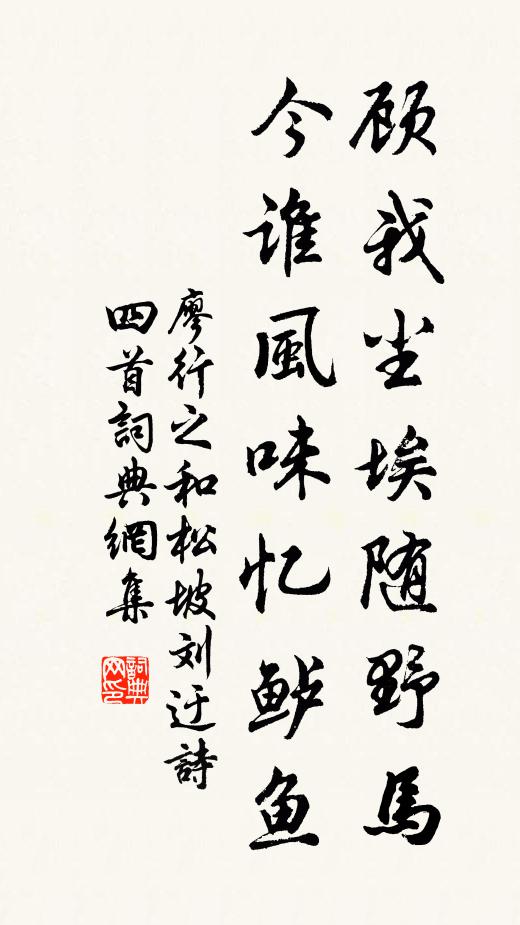 顾我尘埃随野馬
今谁風味忆鲈鱼
廖行之和松坡刘迂詩
四首詞典網集
詞典网印